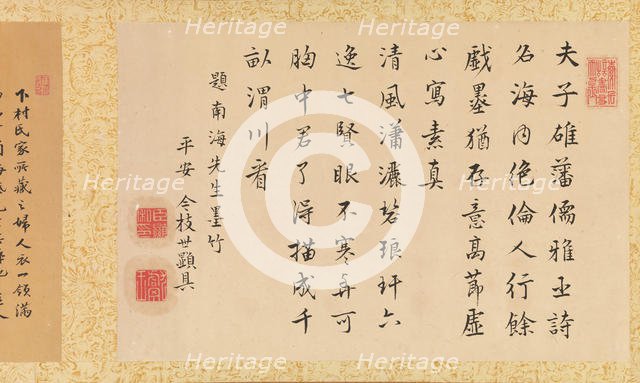 夫子雄藩儒雅詩
名海内絶倫人行餘
戲墨猶存意高節虛
心寫素真
清風瀟灑碧琅玕六
逸七賢眼不寒与可
胸中君了得描成千
畝渭川看
題南海先生墨竹
平安 今枝世顯具
下村氏家所藏之婦人衣一領滿
Heritage
Heritage
Heritage
Heritage
Heritage
Heritage
Heritage
Heritage